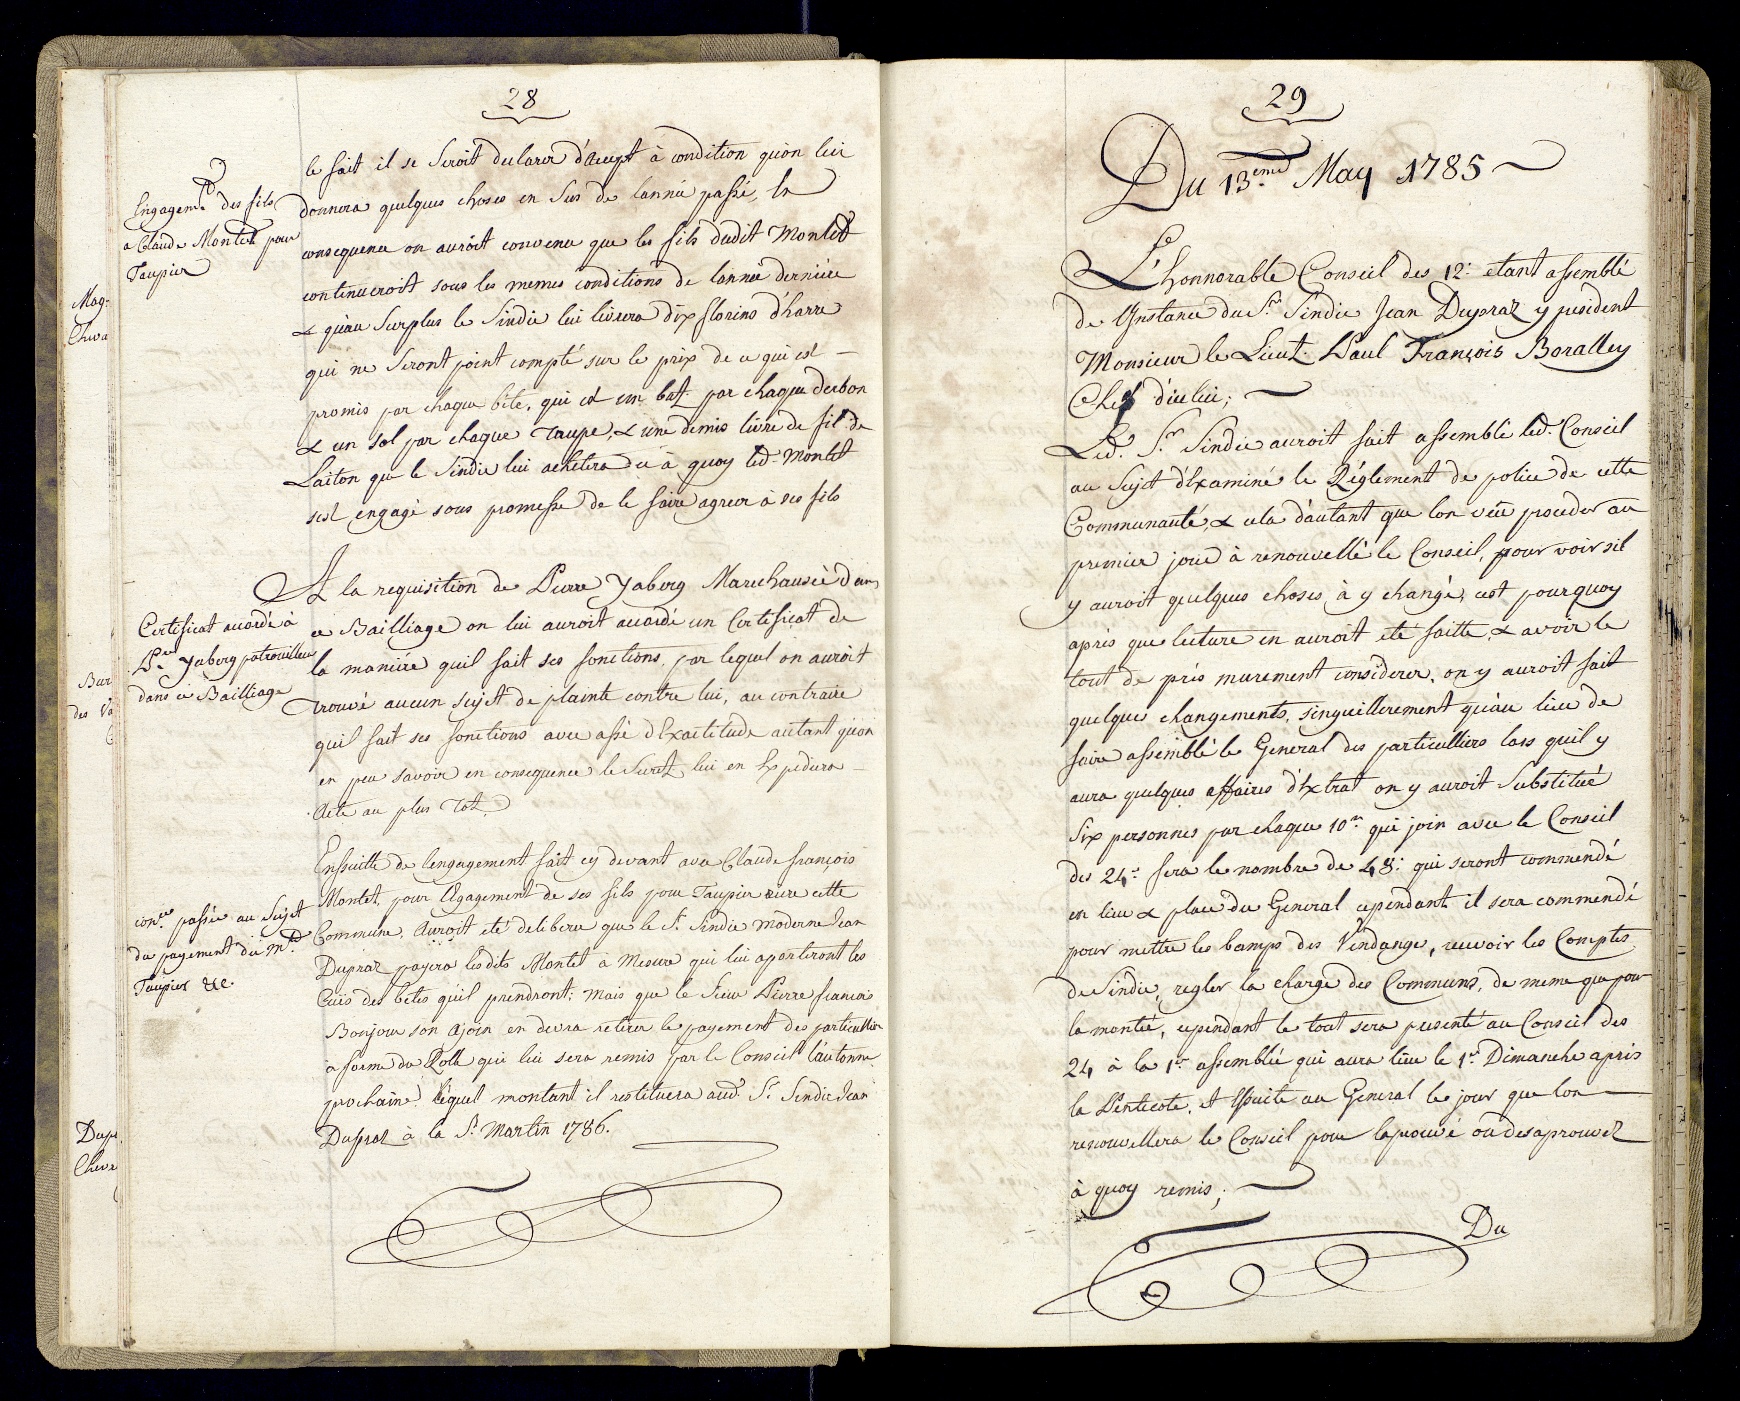 28
Engagem.t des fils
a Claude Montet pour
Taupier
le fait il se seroit declarer d'accept à condition qu'on lui
donnera quelques choses en sus de lannée passé, En
consequence on auroit convenu que les fils dudit Montet
continueroit sous les memes conditions de lannée derniére
& qu'au surplus le Sindic lui livrera dix florins d'harre
qui ne seront point compté sur le prix de ce qui est
promis par chaque bête, qui est un bat. par chaque derbon
& un sol par chaque Taupe, & une demie livre de fil de
Laiton que le Sindic lui achetera ce à quoy led. Montet
sest engagé sous promesse de le faire agreer à ses fils
Certificat accordé à
P.re Yaberg patrouilleur
dans ce Bailliage
A la requisition de Pierre Yaberg Marechaussée dans
ce Bailliage on lui auroit accordé un Certificat de
la maniére quil fait ses fonctions, par lequel on auroit
trouvé aucun sujet de plainte contre lui, au contraire
quil fait ses fonctions avec assé d'Exactitude autant qu'on
en peu savoir en consequence le Secret. lui en Expediera
Acte au plus Tot.
con.on passée au Sujet
du payement du m.d
Taupier &c.
Ensuitte de lengagement fait cy devant avec Claude françois
Montet, pour l'Egagement de ses fils pour Taupier riere cette
Commune, Auroit eté deliberé que le S.r Sindic moderne Jean
Dupraz payera lesdits Montet à Mesure qui lui aporteront les
Cuis des betes qu'il prendront; mais que le Sieur Pierre francois
Bonjour son ajoin en devra retirer le payement des particullier
à forme du Rolle qui lui sera remis par le Conseil l'automne
prochaine! lequel montant il restituera aud. S.r Sindic Jean
Dupraz à la S.t Martin 1786.
29
Du 13.eme May 1785
L'honnorable Conseil des 12: etant assemblé
de l'Instance du S.r Sindic Jean Dupraz y président
Monsieur le Lieut. Paul François Boralley
Chef d'icelui;
Led. S.r Sindic auroit fait assemblé led. Conseil
au sujet d'Examiné le Réglement de police de cette
Communauté, & cela d'autant que lon veu proceder au
premier jour à renouvellé le Conseil, pour voir sil
y auroit quelques choses à y changé, cest pourquoy
après que lecture en auroit eté faitte, & avoir le
tout de près murement considerer, on y auroit fait
quelques changements, singuillerement qu'au lieu de
faire assemblé le General des particulliers lors quil y
aura quelques affaires d'Extrat on y auroit Substitué
Six personnes par chaque 10.ne qui join avec le Conseil
des 24: fera le nombre de 48: qui seront commendé
en lieu & place du General cependant il sera commendé
pour mettre les bamps des Vendange, recevoir les Comptes
de Sindic, regler la charge des Communs, de meme que pour
la montée, cependant le tout sera presenté au Conseil des
24 à la 1.re assemblée qui aura lieu le 1.er Dimanche après
la Penticote, et Esuite au General les jour que lon
renouvellera le Conseil pour l'aprouvé ou desaprouvez
à quoy remis;
Du
Mag:
Cheva
Bur
des Va
Dup
Cheva